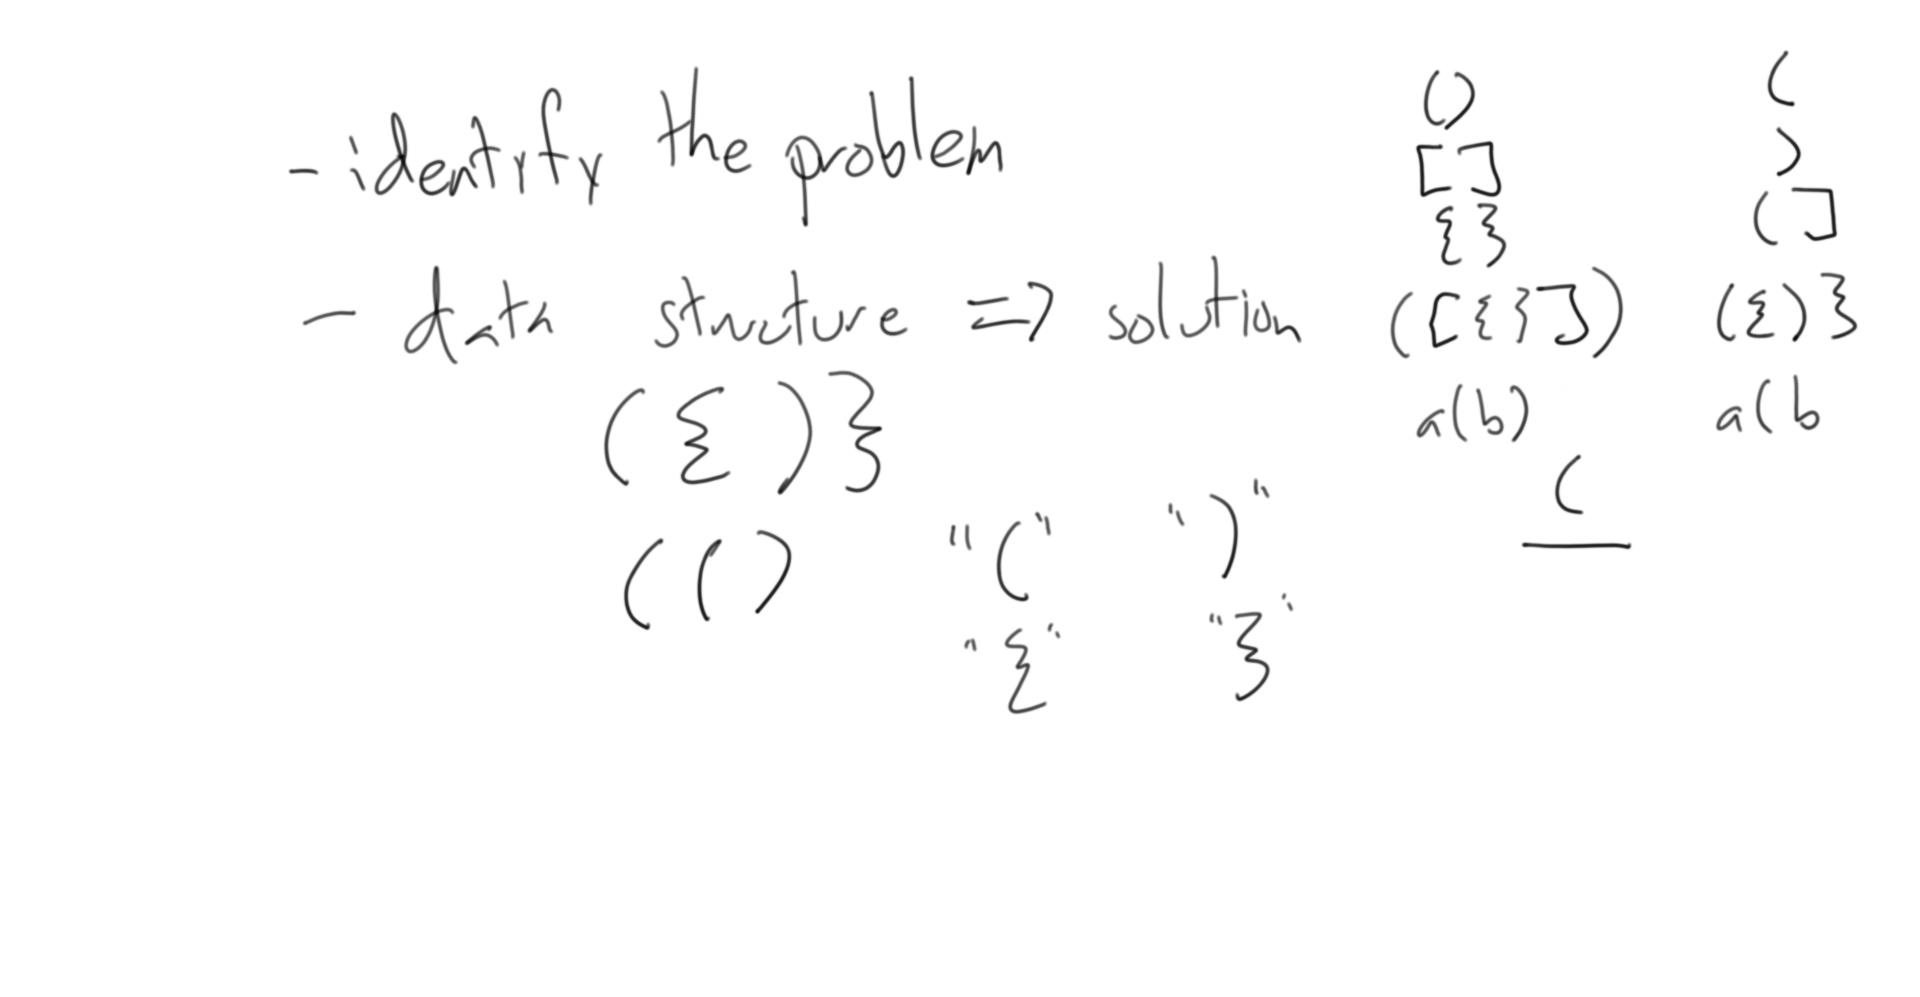 - identify the problem
- data structure => solution
({)}
(()
"(" ")"
"{" "}"
()
[]
{}
([{}])
a(b)
(
(
)
(]
({)}
a(b